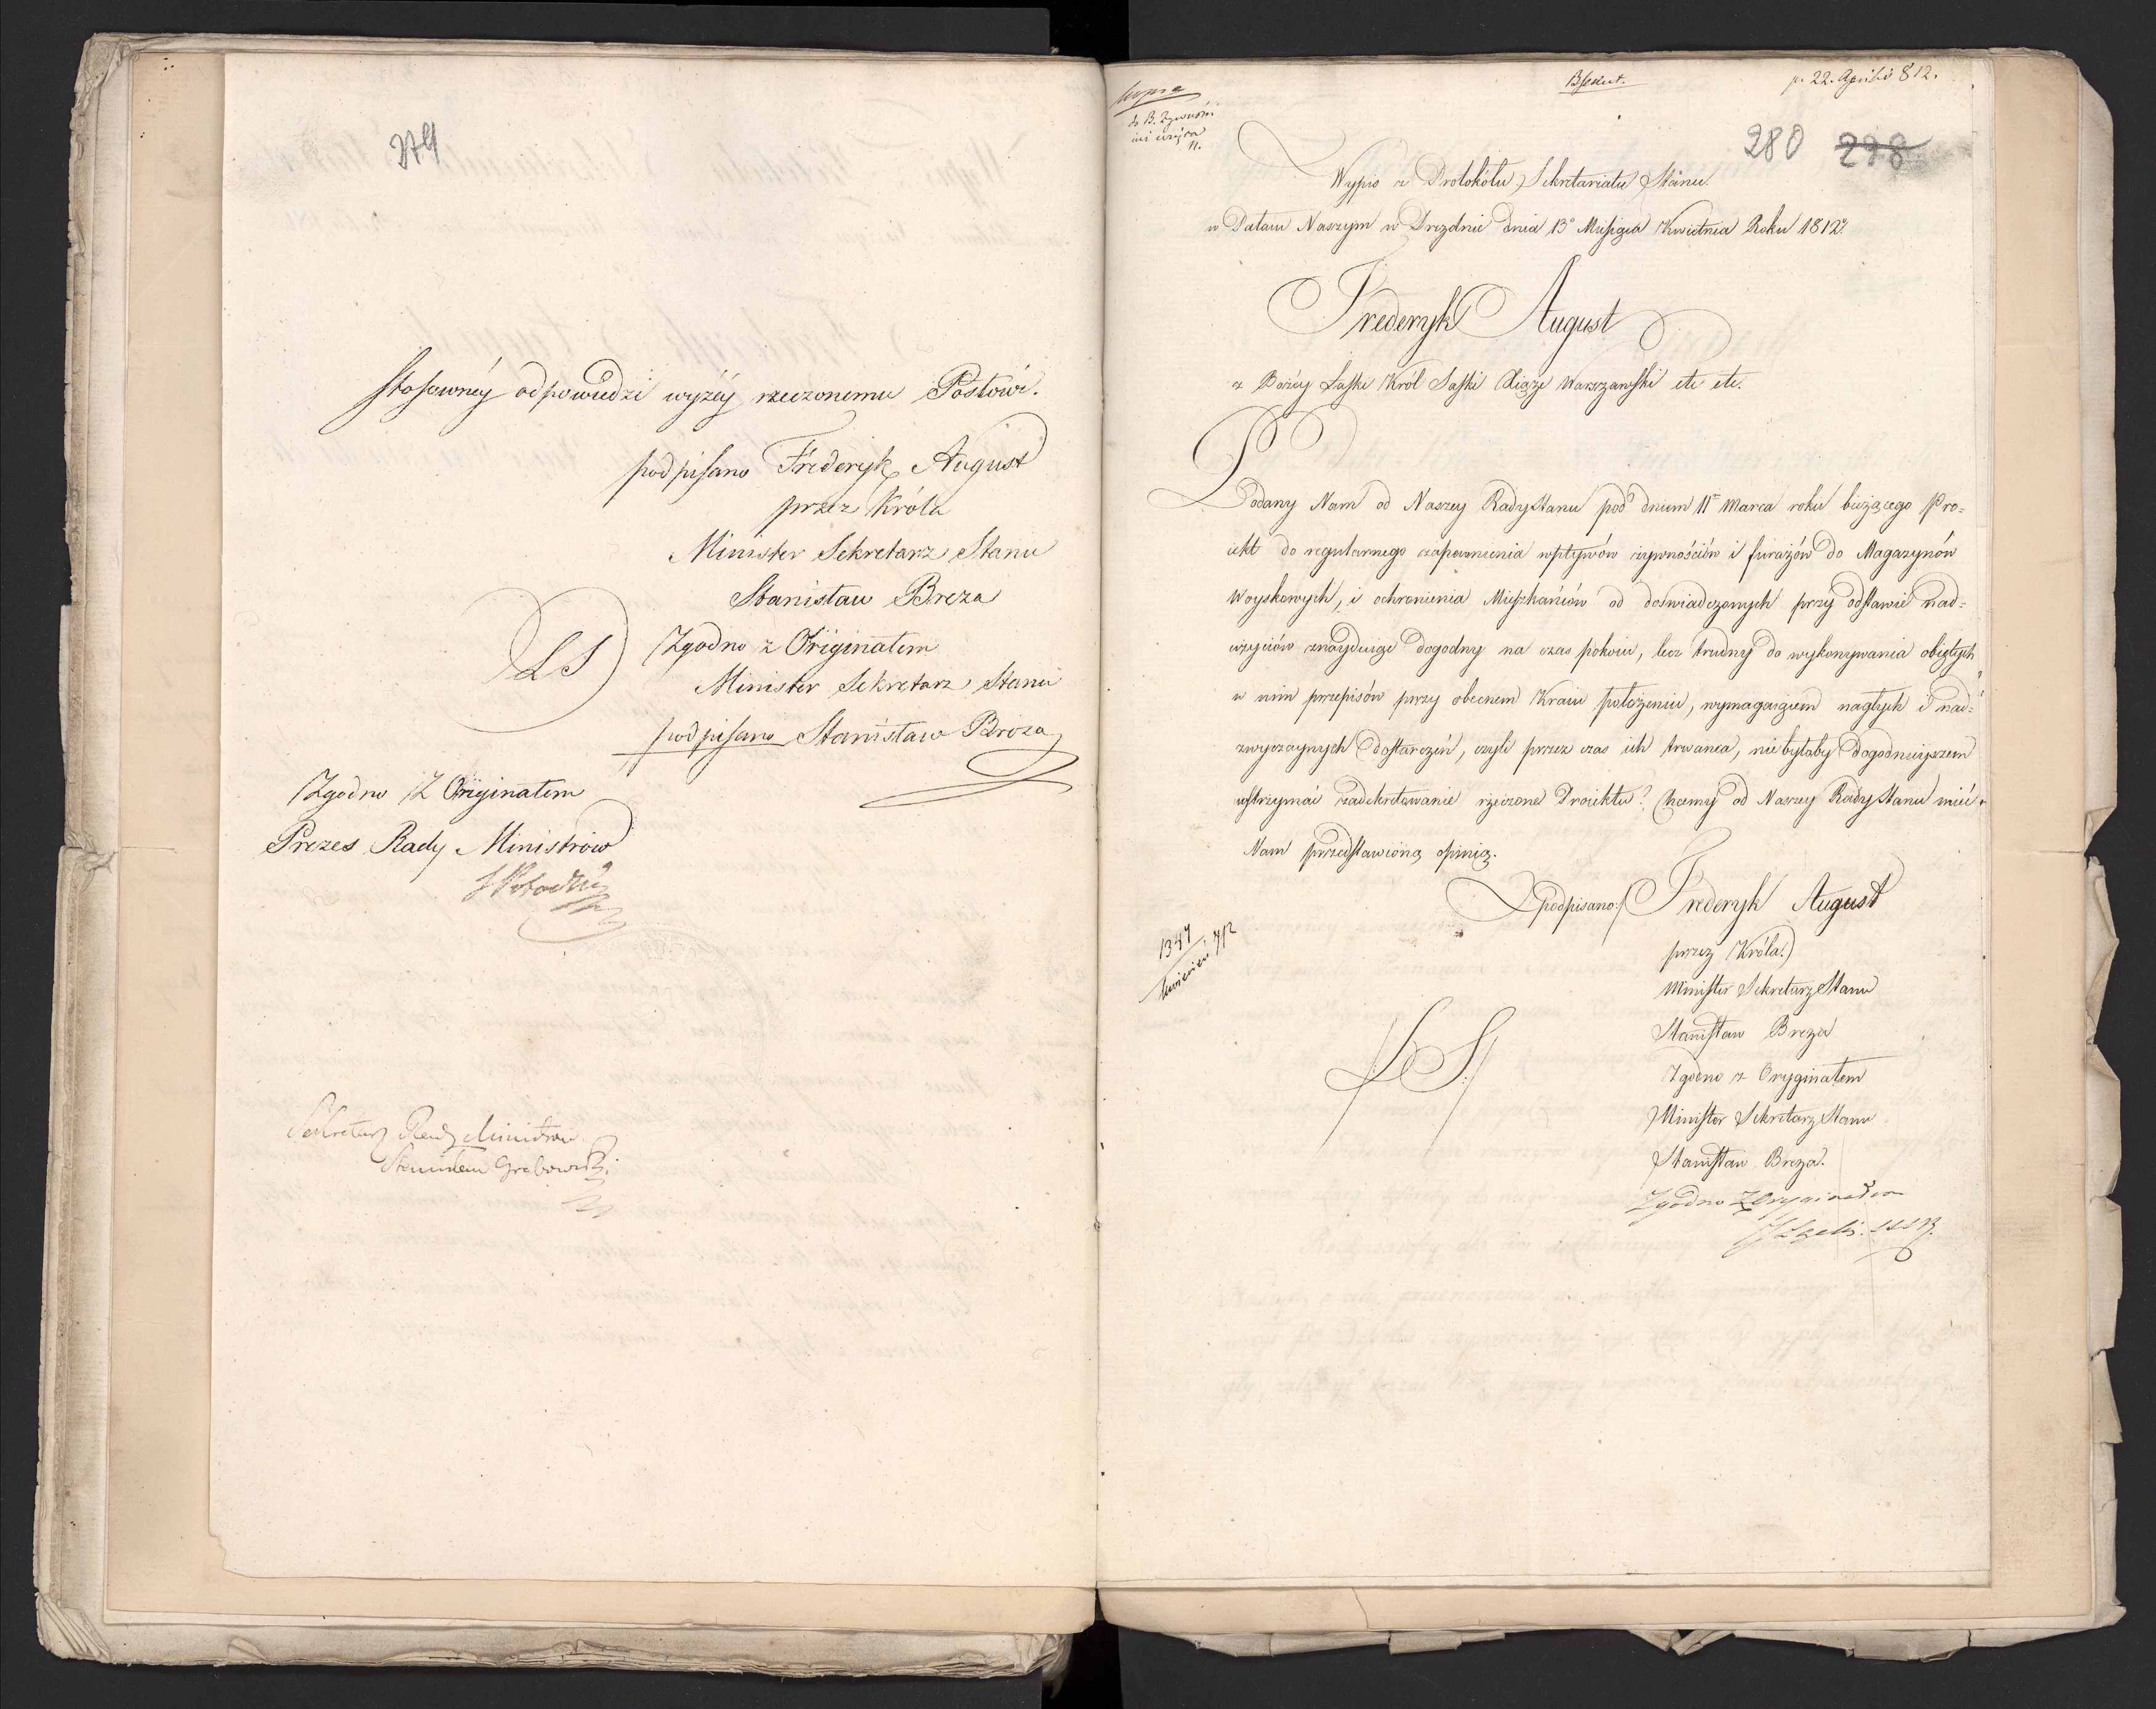 274
stosowney odpowiedzi wyżey rzeczonemu Posłowi.
podpisano Frideryk August
przez Króla
Minister Sekretarz Stanu
Stanisław Breza
LS
Zgodno z Originałem
Minister Sekretarz Stanu
podpisano Stanisław Breza
Zgodno Z Originałem
Prezes Rady Ministrów
Sekretarz Rady Ministrów
Stanisław Grabowski
kopia
do B. Żywności
p. 22. Aprilis 812.
280 278
Wypis z Protokółu Sekretariatu Stanu.
w Pałacu Naszym w Dreznie dnia 13º Miesiąca Kwietnia Roku 1812º
Frederyk August
z Bożey Łaski Król Saski Xiąże Warszawski etc etc.
Podany Nam od Naszey Rady Stanu pod dniem 11m Marca roku bieżącego Pro=
iekt do regularnego zapewnienia wpływów żywnościów i furażów do Magazynów
Woyskowych, i ochronienia Mieszkańców od doświadczonych przy odstawie nad=
użyciów znayduiąc dogodny na czas pokoiu, lecz trudny do wykonywania obiętych
w nim przepisów przy obecnem Kraiu położeniu, wymagaiącem nagłych i nad=
zwyczaynych dostarczeń, czyli przez czas ich trwania, nie byłoby dogodnieyszem
wstrzymać zadekretowanie rzeczone Proiektu? Chcemy od Naszey Rady Stanu mieć
Nam przedstawioną opinią.
podpisano:/ Frederyk August
przez Króla.)
Minister Sekretarz Stanu
Stanisław Breza
1347
L S
Zgodno z Oryginałem
Minister Sekretarz Stanu
Stanisław Breza.
Zgodno Z Oryginałem